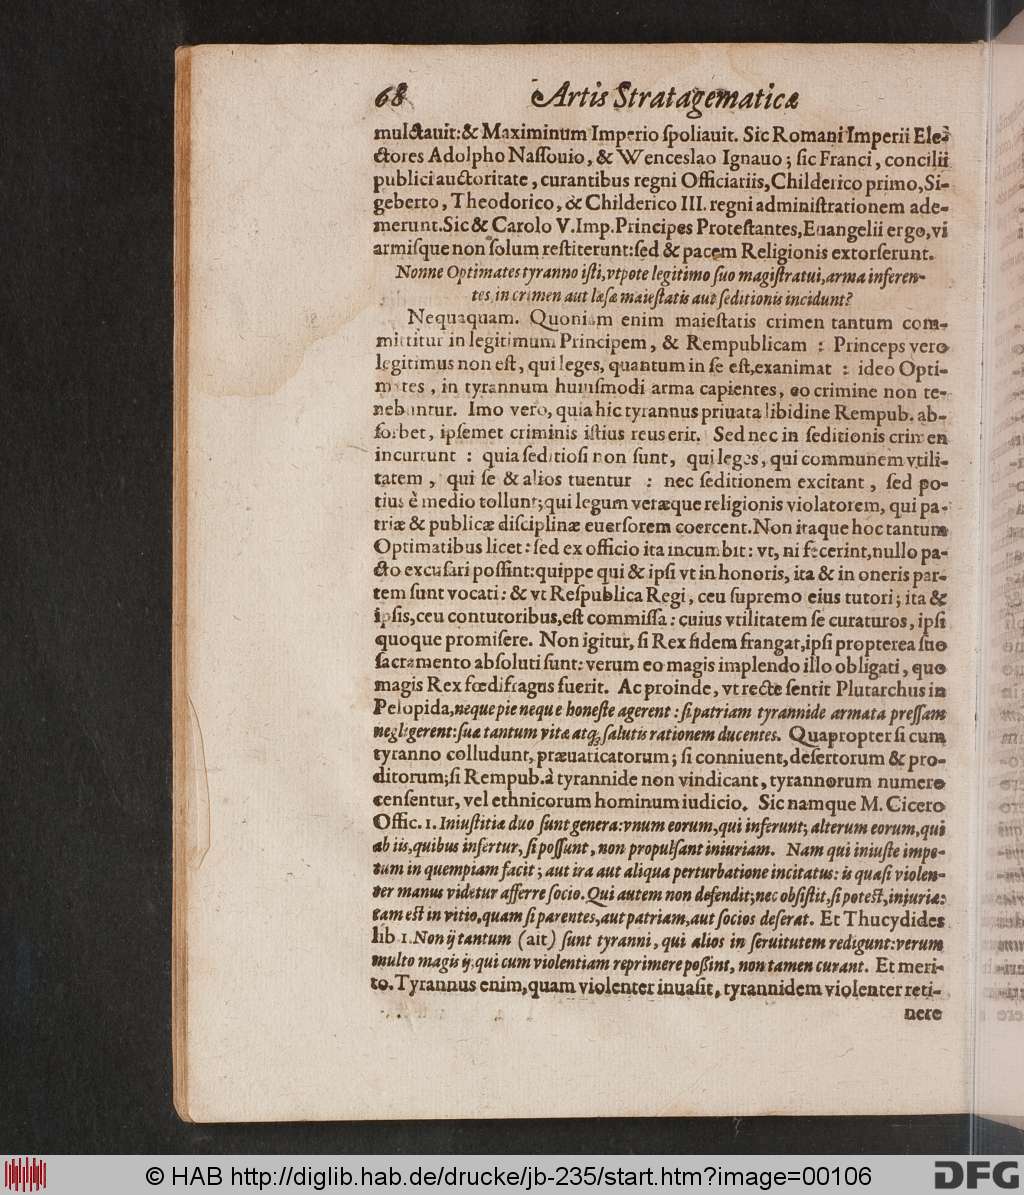 68 Artis Stratagematicæ
mulctauit:& Maximinum Imperio ſpoliauit. Sic Romani Imperii Ele-
ctores Adolpho Naſſouio, & Wenceslao Ignauo; ſic Franci, concilii
publici auctoritate, curantibus regni Officiariis, Childerico primo, Si-
geberto, Theodorico, & Childerico III. regni adminiſtrationem ade-
merunt. Sic & Carolo V. Imp. Principes Proteſtantes, Euangelii ergo, vi
armiſque non ſolum reſtiterunt: ſed & pacem Religionis extorſerunt.
Nonne Optimates tyranno iſti, vtpote legitimo ſuo magiſtratui, arma inferen-
tes, in crimen aut læſæ maieſtatis aut ſeditionis incidunt?
Nequaquam. Quoniam enim maieſtatis crimen tantum com-
mittitur in legitimum Principem, & Rempublicam : Princeps vero
legitimus non eſt, qui leges, quantum in ſe eſt, exanimat : ideo Opti-
mates, in tyrannum huiuſmodi arma capientes, eo crimine non te-
nebuntur. Imo vero, quia hic tyrannus priuata libidine Rempub. ab-
ſorbet, ipſemet criminis iſtius reus erit. Sed nec in ſeditionis crimen
incurrunt : quia ſeditioſi non ſunt, qui leges, qui communem vtili-
tatem, qui ſe & alios tuentur : nec ſeditionem excitant, ſed po-
tius è medio tollunt; qui legum veræque religionis violatorem, qui pa-
triæ & publicæ diſciplinæ euerſorem coercent. Non itaque hoc tantum
Optimatibus licet: ſed ex officio ita incumbit: vt, ni fecerint, nullo pa-
cto excuſari poſſint: quippe qui & ipſi vt in honoris, ita & in oneris par-
tem ſunt vocati: & vt Reſpublica Regi, ceu ſupremo eius tutori; ita &
ipſis, ceu contutoribus, eſt commiſſa: cuius vtilitatem ſe curaturos, ipſi
quoque promiſere. Non igitur, ſi Rex fidem frangat, ipſi propterea ſuo
ſacramento abſoluti ſunt: verum eo magis implendo illo obligati, quo
magis Rex fœdifragus fuerit. Ac proinde, vt recte ſentit Plutarchus in
Pelopida, neque pie neque honeſte agerent: ſi patriam tyrannide armata preſſam
negligerent: ſuæ tantum vitæ atq; ſalutis rationem ducentes. Quapropter ſi cum
tyranno colludunt, præuaricatorum; ſi conniuent, deſertorum & pro-
ditorum; ſi Rempub. à tyrannide non vindicant, tyrannorum numero
cenſentur, vel ethnicorum hominum iudicio. Sic namque M. Cicero
Offic. 1. Iniuſtitiæ duo ſunt genera: vnum eorum, qui inferunt; alterum eorum, qui
ab iis, quibus infertur, ſi poſſunt, non propulſant iniuriam. Nam qui iniuſte impe-
tum in quempiam facit; aut ira aut aliqua perturbatione incitatus: is quaſi violen-
ter manus videtur afferre ſocio. Qui autem non defendit; nec obſiſtit, ſi poteſt, injuriæ:
tam eſt in vitio, quam ſi parentes, aut patriam, aut ſocios deſerat. Et Thucydides
lib 1. Non ij tantum (ait) ſunt tyranni, qui alios in ſeruitutem redigunt: verum
multo magis ij, qui cum violentiam reprimere poßint, non tamen curant. Et meri-
to. Tyrannus enim, quam violenter inuaſit, tyrannidem violenter reti-
nere
© HAB http://diglib.hab.de/drucke/jb-235/start.htm?image=00106
DFG